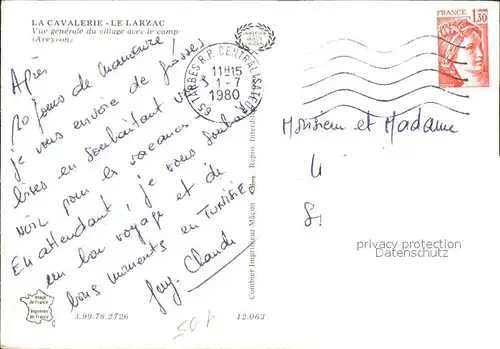 LA CAVALERIE - LE LARZAC
Vue générale du village avec le camp
(Aveyron)
Après
20 jours de manœuvre !
je vous envoie de grosses
bises en souhaitant
NOIL pour la vacances
En attendant, je vous souhaite
un bon voyage et de
bons moments en TUNISIE
Jany. Claude
Combier Imprimeur Mâcon
Image
de France
Imprimée
en France
3.99.78.2726
12.063
501
65 TARBES R.P. CENTRALISATEUR
11H15
1-7
1980
FRANCE
1,30
Monsieur et Madame
privacy protection
Datenschutz